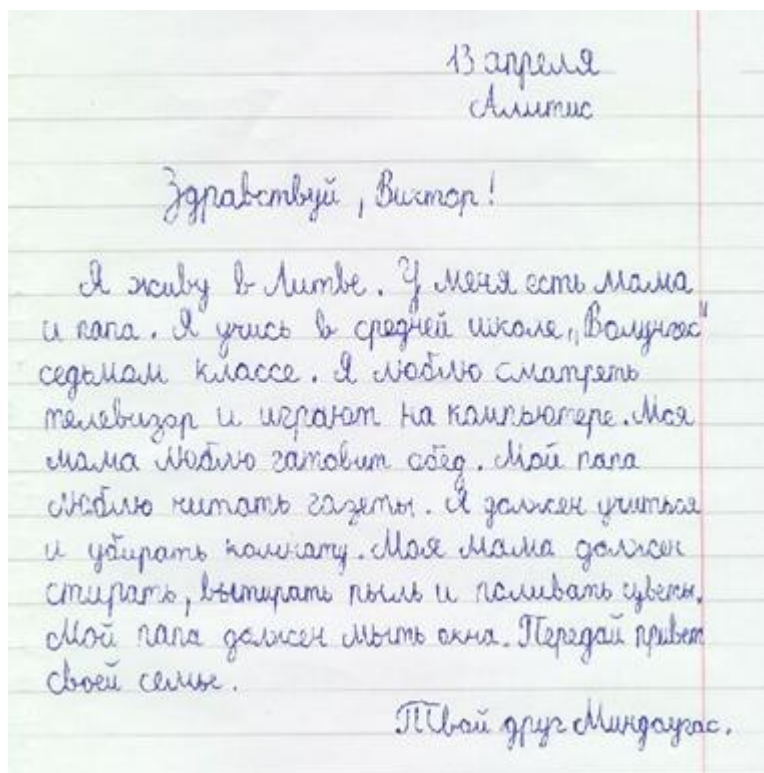 13 апреля
Алитис
Здравствуй, Виктор!
Я живу в Литве. У меня есть мама
и папа. Я учись в средней школе „Волунгес“
седьмам классе. Я люблю сматреть
телевизор и играют на кампьютере. Моя
мама люблю гатовит обед. Мой папа
люблю читать газеты. Я должен учиться
и убирать комнату. Моя мама должен
стирать, вытирать пыль и паливать цветы.
Мой папа должен мыть окна. Передай привет
своей семье.
Твой друг Миндаугас.